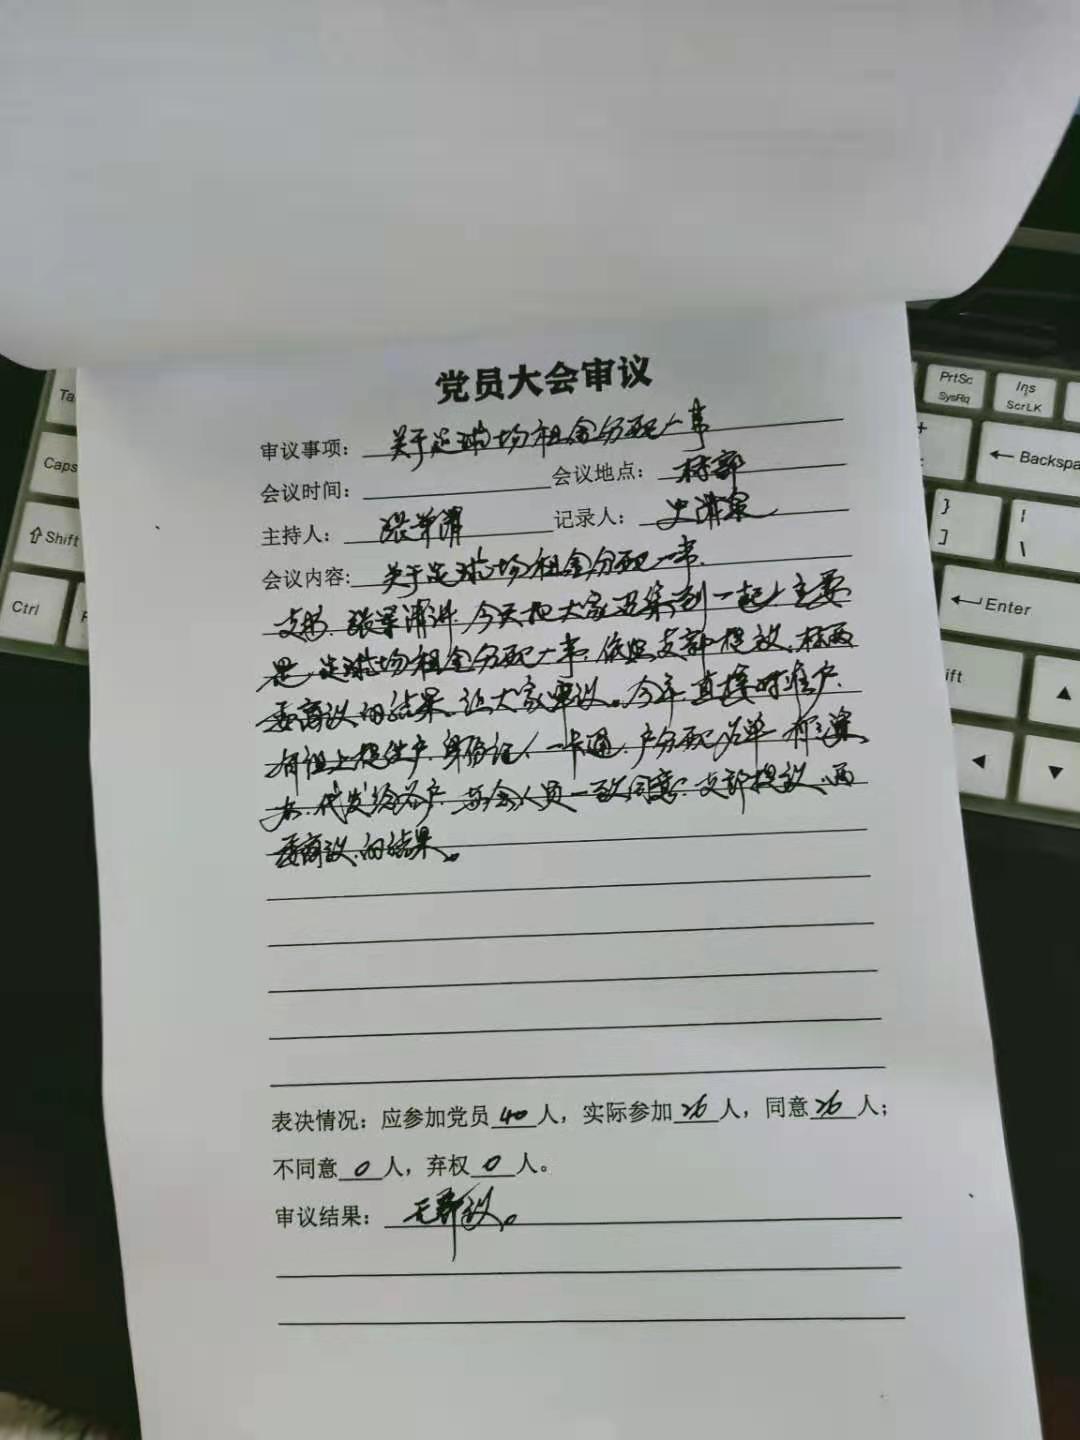 党员大会审议
审议事项： 关于足球场租金分配一事
会议时间： 会议地点： 村部
主持人： 张 清 记录人： 史清泉
会议内容: 关于足球场租金分配一事.
支书. 张 清讲. 今天把大家召集到一起, 主要
是. 足球场租金分配一事. 依照支部提议. 村两
委商议的结果. 让大家审议。今年直接对准户.
有组上提供户. 身份证、一卡通. 户分配名单.
代发给各户. 与会人员一致同意. 支部提议、两
委商议的结果。
表决情况：应参加党员 40 人，实际参加 26 人，同意 26 人；
不同意 0 人，弃权 0 人。
审议结果： 无异议。
PrtSc
SysRq
Ins
ScrLK
Backspa
}
]
|
\
Enter
ift
Ta
Caps
Shift
Ctrl